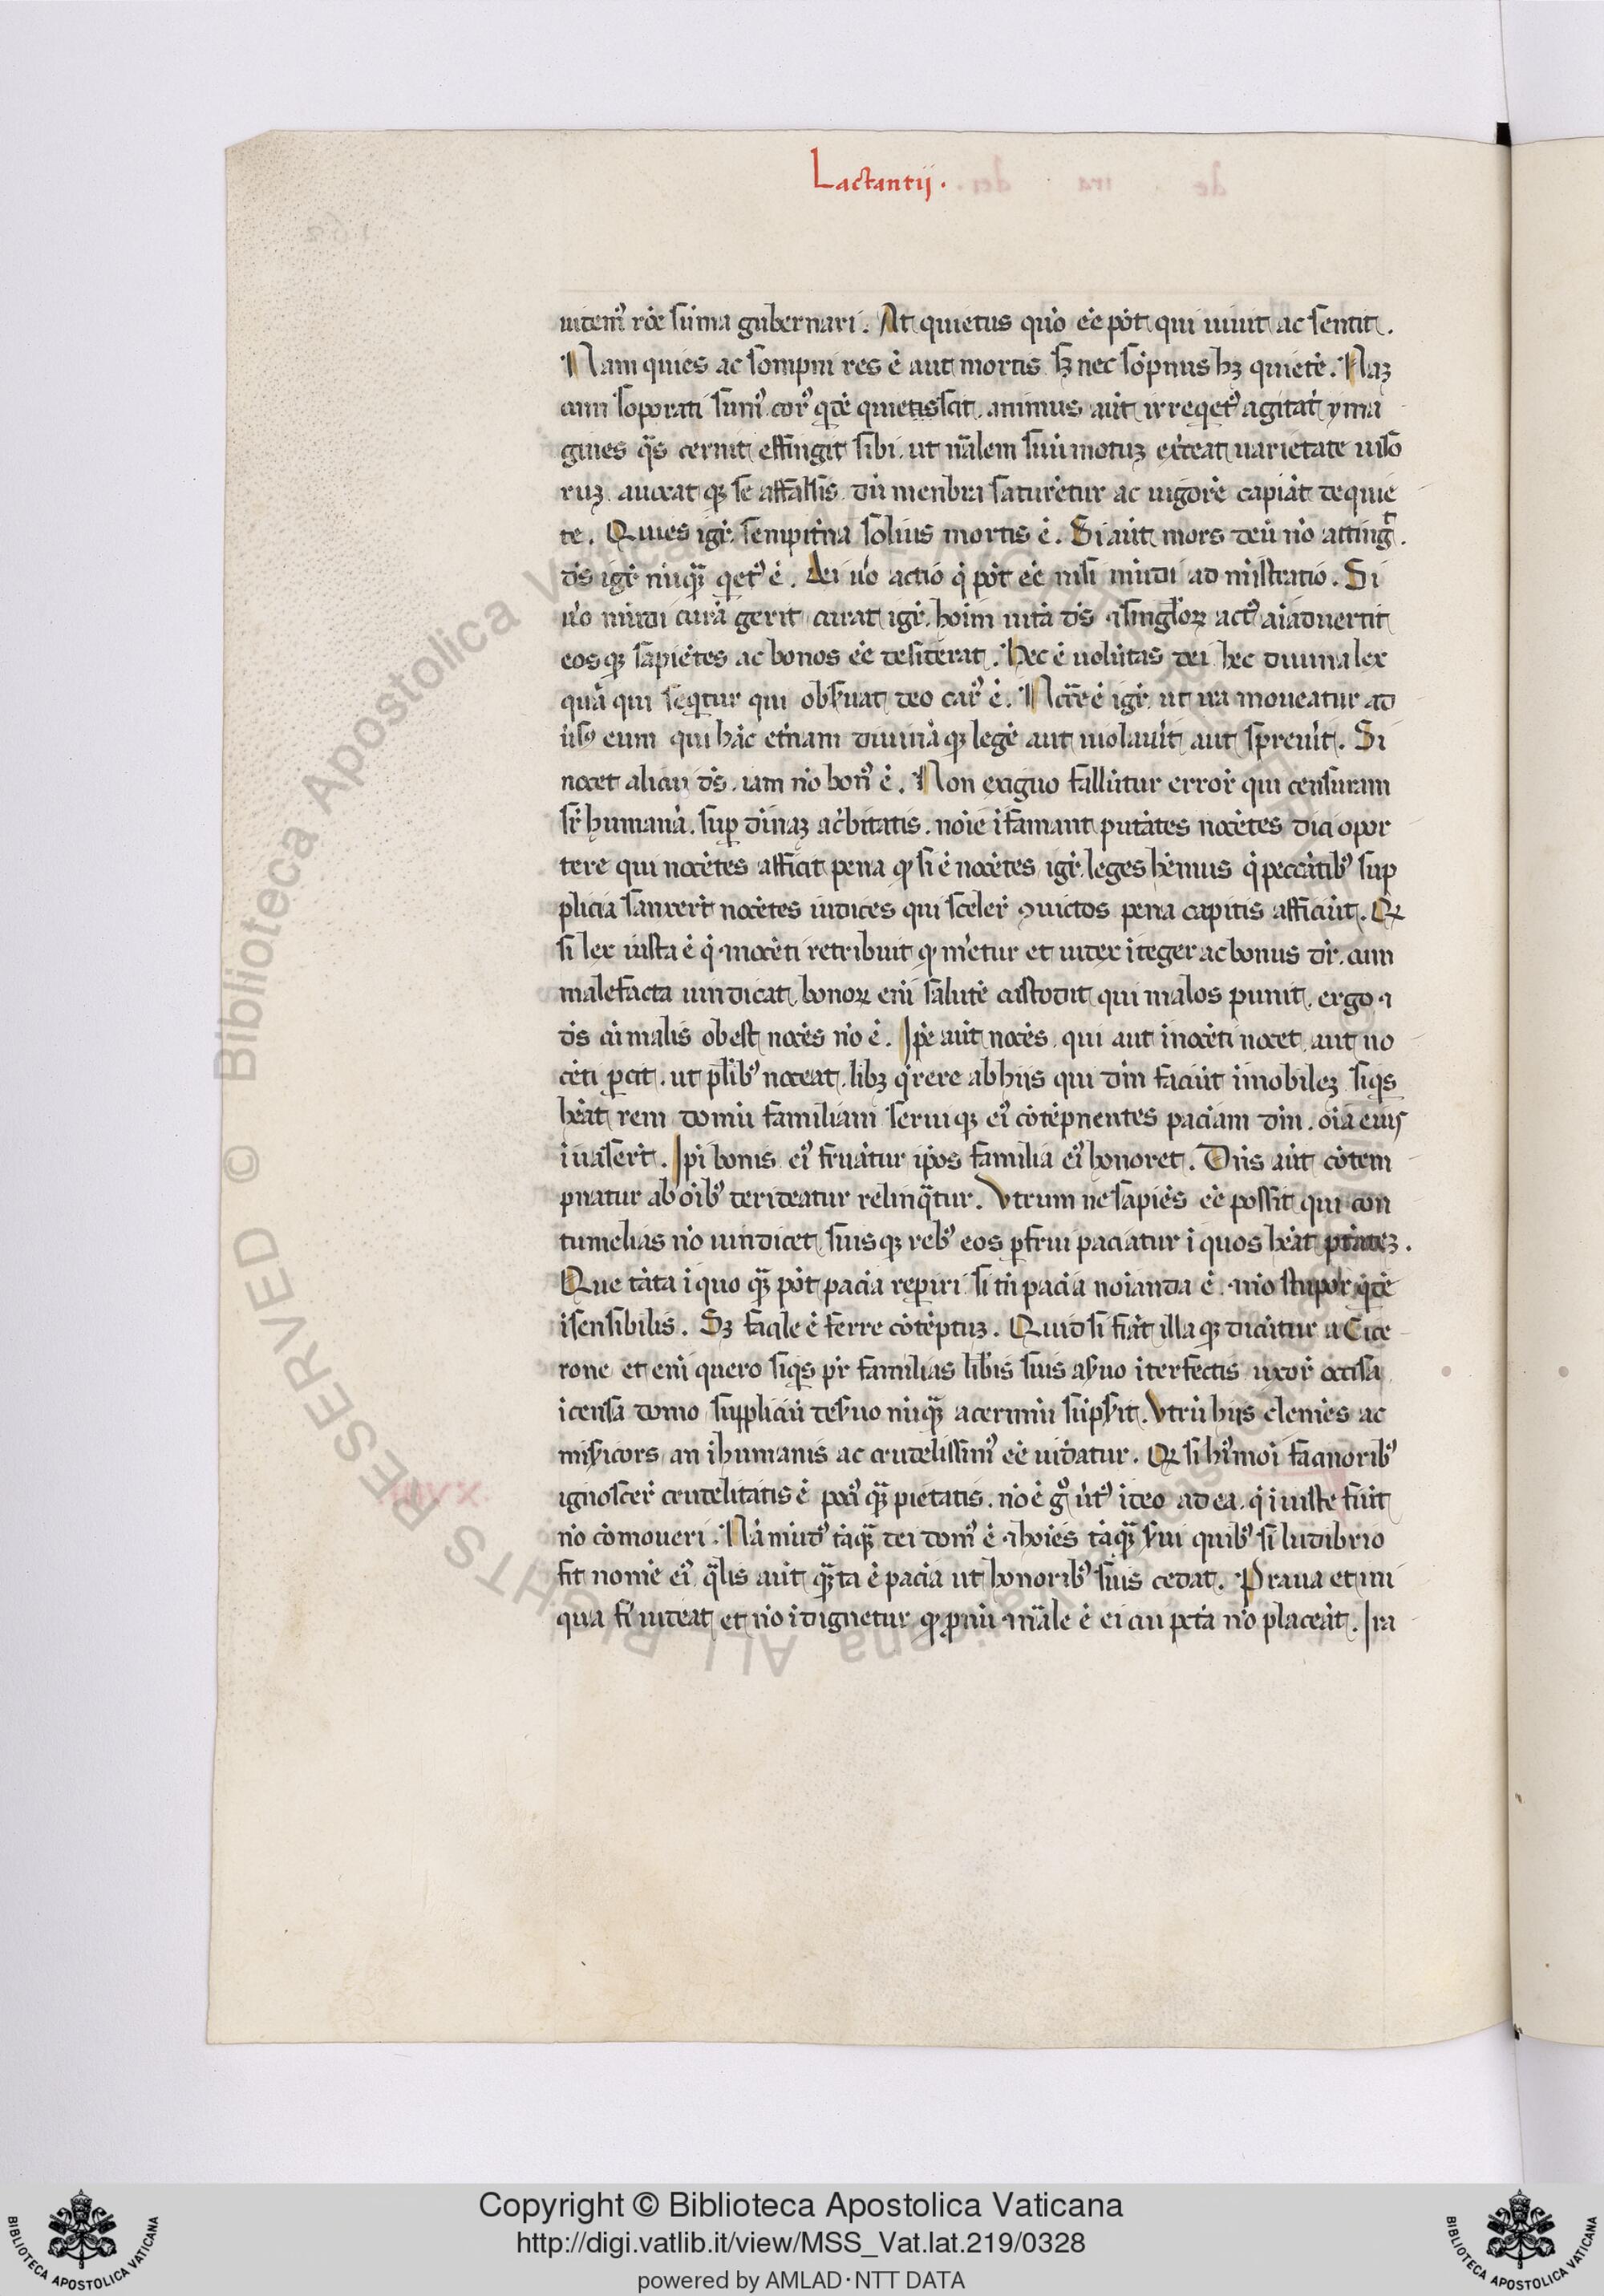 Lactantij.
uidemꝰ rōe sūma gubernari. At quietus quō ēē pōt qui uiuit ac sentit.
Nam quies ac sompni res ē aut mortis sꝫ nec sōpnus hꝫ quietē. Naꝫ
cum soporati sumꝰ corꝰ qdē quiescit. animus aūt irreqetꝰ agitat̄ yma
gines qͣs cernit effingit sibi. ut nālem suū motuꝫ exēeat uarietate uiso
ruꝫ. auocat qꝫ se a falsis dū menbra saturētur ac uigorē capiāt de quie
te. Quies igr̄ sempit̄na solius mortis ē. Si aūt mors deū nō attinḡt.
dꝰs igr̄ nūqͣꝫ qetꝰ ē. Dei ūo actio q̄ pōt ēē nisi mūdi administratio. Si
ūo mūdi curā gerit curat igr̄ hoīm uitā dꝰs ⁊ singĺoꝝ actꝰ aīaduertit
eosqꝫ sapiētes ac bonos ēē desiderat. Hec ē uolūtas dei hec diuina lex
quā qui seqͥtur qui obẜuat deo carꝰ ē. Nccē ē igr̄ ut ira moueatur ad
ūsꝰ eum qui hāc et̄nam diuināqꝫ legē aut uiolaūit aut spreūit. Si
nocet alicui dꝰs. iam nō bonꝰ ē. Non exiguo fallūtur error̄ qui censuram
sr̄ humanā. suꝑ diūnaꝫ ac̄bitatis. noīe īfamant putātes nocētes dici opor
tere qui nocētes afficit pena qꝫ si ē nocētes igr̄ leges hēmus q̄ peccātibꝰ sup
plicia sanxer̄t nocētes iudices qui sceler̄ ꝯuictos pena capitis afficiūt. Qꝫ
si lex iusta ē q̄ nocēti retribuit qꝫ mētur et iudex īteger ac bonus dr̄. cum
malefacta uindicat. bonoꝝ enī salutē custodit qui malos punit. ergo ⁊
dꝰs cū malis obest nocēs nō ē. Ip̄e aūt nocēs. qui aut īnocēti nocet aut no
cēti ꝑcit. ut pĺibꝰ noceat. libꝫ q̄rere ab hijs qui dm̄ faciūt īmobileꝫ siqͥs
hēat rem domū familiam seruiqꝫ eiꝰ cōtēpnentes paciam dm̄. oīa eius
īuaser̄t. Ip̄i bonis eiꝰ fruātur ip̄os familia eiꝰ honoret. Dn̄s aūt cōtem
pnatur ab oībꝰ derideatur relinqͣtur. Vtrum ne sapiēs ēē possit qui con
tumelias nō uindicet suisqꝫ rebꝰ eos ꝑfrui paciatur ī quos hēat ptāteꝫ.
Que tāta ī quo qͣꝫ pōt pacīa reꝑiri si tn̄ pacīa noīanda ē. ⁊ nō stupor qͥdē
īsensibilis. Sꝫ facile ē ferre cōtēptuꝫ. Quid si fiāt illa qꝫ dicūtur a Cice
rone et enī quero siqͥs pr̄ familias lib̄is suis a ẜuo īterfectis uxor̄ occisa
īcensa domo suppliciū de ẜuo nūqͣꝫ acerrimū sūpẜit. Vtrū hijs clemēs ac
miẜicors an īhumanis ac crudelissimꝰ ēē uid̄atur. Qꝫ si hꝰmōi facinoribꝰ
ignoscer̄ crudelitatis ē pociꝰ qͣꝫ pietatis. nō ē gͦ ūtꝰ ideo ad ea. q̄ īiuste fiūt
nō cōmoueri. Nā mūdꝰ tāqͣꝫ dei domꝰ ē ⁊ hoīes tāqͣꝫ ẜui quibꝰ si ludibrio
sit nomē eiꝰ qͣlis aūt qͣꝫta ē pacīa ut honoribꝰ suis cedat. Praua et ini
qua fiī uideat et nō īdignetur qꝫ ꝓpriū ⁊ nāle ē ei cui pctā nō placeāt. Ira
Copyright © Biblioteca Apostolica Vaticana
http://digi.vatlib.it/view/MSS_Vat.lat.219/0328
powered by AMLAD·NTT DATA